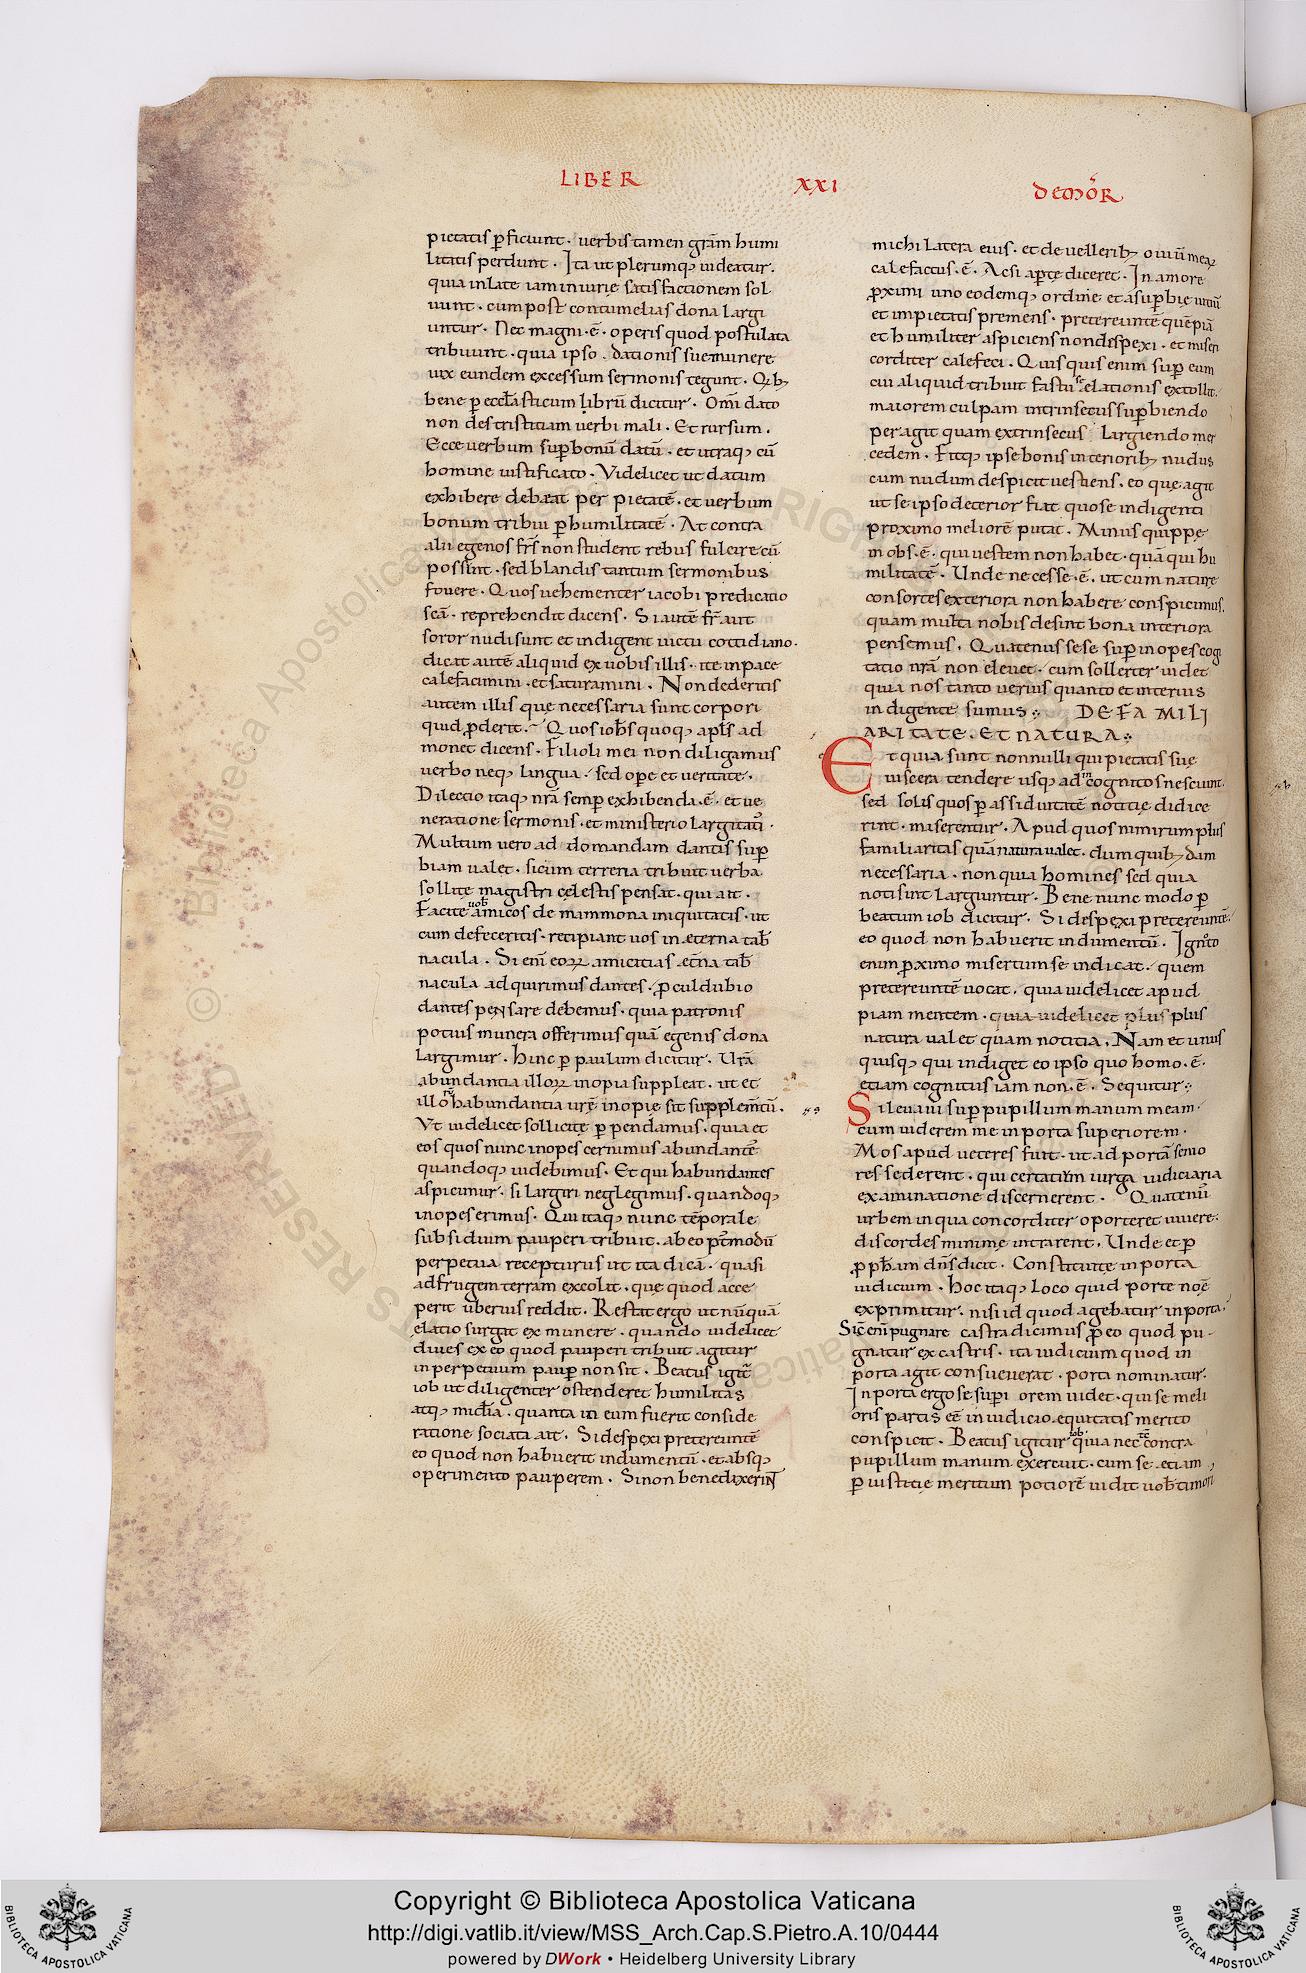 LIBER XXI DEMOR̄
pietatis p̄ficiunt · uerbis tamen grām humi
litatis perdunt · Ita ut plerumq; uideatur ·
quia inlate iam iniurię satisfactionem sol
uunt · cum post contumelias dona largi
untur · Nec magni · ē · operis quod postulata
tribuunt · quia ipso dationis suę munere
uix eundem excessum sermonis tegunt · Q̄ b;
bene p̄ ecclāsticum librū dicitur · Omī dato
non des tristitiam uerbi mali · Et rursum ·
Ecce uerbum sup̄ bonū datū · et utraq; cū
homine iustificato · Videlicet ut datum
exhibere debeat per pietatē · et uerbum
bonum tribui p̄ humilitatē · At contra
alii egenos frs̄ non student rebus fulcire cū
possint · sed blandis tantum sermonibus
fouere · Quos uehementer iacobi predicatio
scā · reprehendit dicens · Si autē fr̄ aut
soror nudi sunt et indigent uictu cottidiano ·
dicat autē aliquid ex uobis illis · ite in pace
calefacimini · et saturamini · Non dederitis
autem illis quę necessaria sunt corpori
quid p̄derit · Quos iohs̄ quoq; apls̄ ad
monet dicens · Filioli mei non diligamus
uerbo neq; lingua · sed ope̅ et ueritate ·
Dilectio itaq; nrā semp̄ exhibenda · ē · et ue
neratione sermonis · et ministerio largitatis ·
Multum uero ad domandam dantis sup̄
biam ualet · si cum terrena tribuit uerba
sollite magistri cęlestis pensat · qui ait ·
Facite uob̄ amicos de mammona iniquitatis · ut
cum defeceritis · recipiant uos in ęterna tab̄
nacula · Si enī eoꝝ amicitias ęt̄na tab̄
nacula adquirimus dantes · p̄culdubio
dantes pensare debemus · quia patronis
potius munera offerimus quā egenis dona
largimur · Hinc p̄ paulum dicitur · Urā
abundantia illoꝝ inopia suppleat · ut et
illoꝝ habundantia urę̄ inopię sit supplemtū ·
Ut uidelicet sollicitę p̄pendamus · quia et
eos quos nunc inopes cernimus abundantē
quandoq; uidebimus · Et qui habundantes
aspicimur · si largiri neglegimus · quandoq;
inopes erimus · Qui itaq; nunc tēporale
subsidium pauperi tribuit · ab eo pt̄modū
perpetua recepturus ut ita dicā · quasi
ad frugem terram excolit · quę quod acce
perit uberius reddit · Restat ergo ut nūquā
elatio surgat ex munere · quando uidelicet
diues ex eo quod pauperi tribuit agitur
in perpetuum paup̄ non sit · Beatus igit̄
iob ut diligenter ostenderet humilitas
atq; mīcdia · quanta in eum fuerit conside
ratione sociata ait · Si despexi pretereuntē
eo quod non habuerit indumentū · et absq;
operimento pauperem · Si non benedixerint
michi latera eius · et de uellerib; ouiū meaꝝ
calefactus · ē · Ac si ap̄tę diceret · In amore
p̄ximi uno eodemq; ordine et a sup̄bię uitiū
et impietatis premens · pretereuntē quē piā
et humiliter aspiciens non despexi · et miseri
corditer calefeci · Quisquis enim sup̄ eum
cui aliquid tribuit fastu se elationis extollit ·
maiorem culpam intrinsecus sup̄biendo
peragit quam extrinsecus largiendo mer
cedem · Fitq; ipse bonis interiorib; nudus
cum nudum despicit uestiens · eo quę agit
ut se ipso deterior fiat quo se indigenti
proximo meliorē putat · Minus quippe
inobs · ē · qui uestem non habet · quā qui hu
militatē · Unde necesse · ē · ut cum naturę
consortes exteriora non habere conspicimus ·
quam multa nobis desint bona interiora
pensemus · Quatenus sese sup̄ inopes cogi
tatio nrā non eleuet · cum sollerter uidet
quia nos tanto uerius quanto et interius
indigente sumus : DE FAMILI
ARITATE · ET NATURA :
Et quia sunt nonnulli qui pietatis suę
uiscera tendere usq; ad incognitos nesciunt ·
sed solis quos p̄ assiduitatē notitię didice
rint · miserentur · Apud quos nimirum plus
familiaritas quā natura ualet · dum quib; dam
necessaria · non quia homines sed quia
noti sint larguntur · Bene nunc modo p̄
beatum iob dicitur · Si despexi pretereuntē ·
eo quod non habuerit indumentū · Ignoto
enim p̄ximo misertum se indicat · quem
pretereuntē uocat · quia uidelicet apud
piam mentem · quia uidelicet plus plus
natura ualet quam notitia · Nam et unus
quisq; qui indiget eo ipso quo homo · ē ·
etiam cognitus iam non · ē · Sequitur :
Si leuaui sup̄ pupillum manum meam ·
cum uiderem me in porta superiorem ·
Mos apud ueteres fuit · ut ad portā senio
res sederent · qui certatim iurga iudiciaria
examinatione discernerent · Quatenū
urbem in qua concorditer oporteret uiuere ·
discordes minimę intrarent · Unde et p̄
p̄ph̄am dn̄s dicit · Constituite in porta
iudicium · Hoc itaq; loco quid portę noē
exprimitur · nisi id quod agebatur in porta ·
Sic enī pugnare castra dicimus p̄ eo quod pu
gnatur ex castris · ita iudicium quod in
porta agit consueuerat · porta nominatur ·
In porta ergo se superiorem uidet · qui se meli
oris partis eē in iudicio ęquitatis merito
conspicit · Beatus igitur iob quia nec contra
pupillum manum exercuit · cum se etiam
p̄ iustitię meritum potiorē uidit uob̄ timori
Copyright © Biblioteca Apostolica Vaticana
http://digi.vatlib.it/view/MSS_Arch.Cap.S.Pietro.A.10/0444
powered by DWork • Heidelberg University Library
BIBLIOTECA APOSTOLICA VATICANA
BIBLIOTECA APOSTOLICA VATICANA